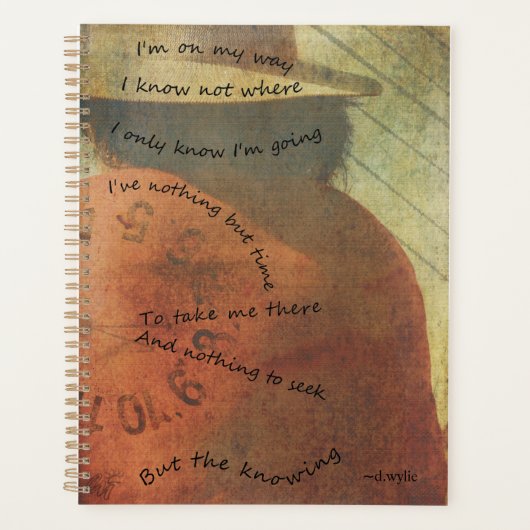 I'm on my way
I know not where
I only know I'm going
I've nothing but time
To take me there
And nothing to seek
But the knowing
~d.wylie